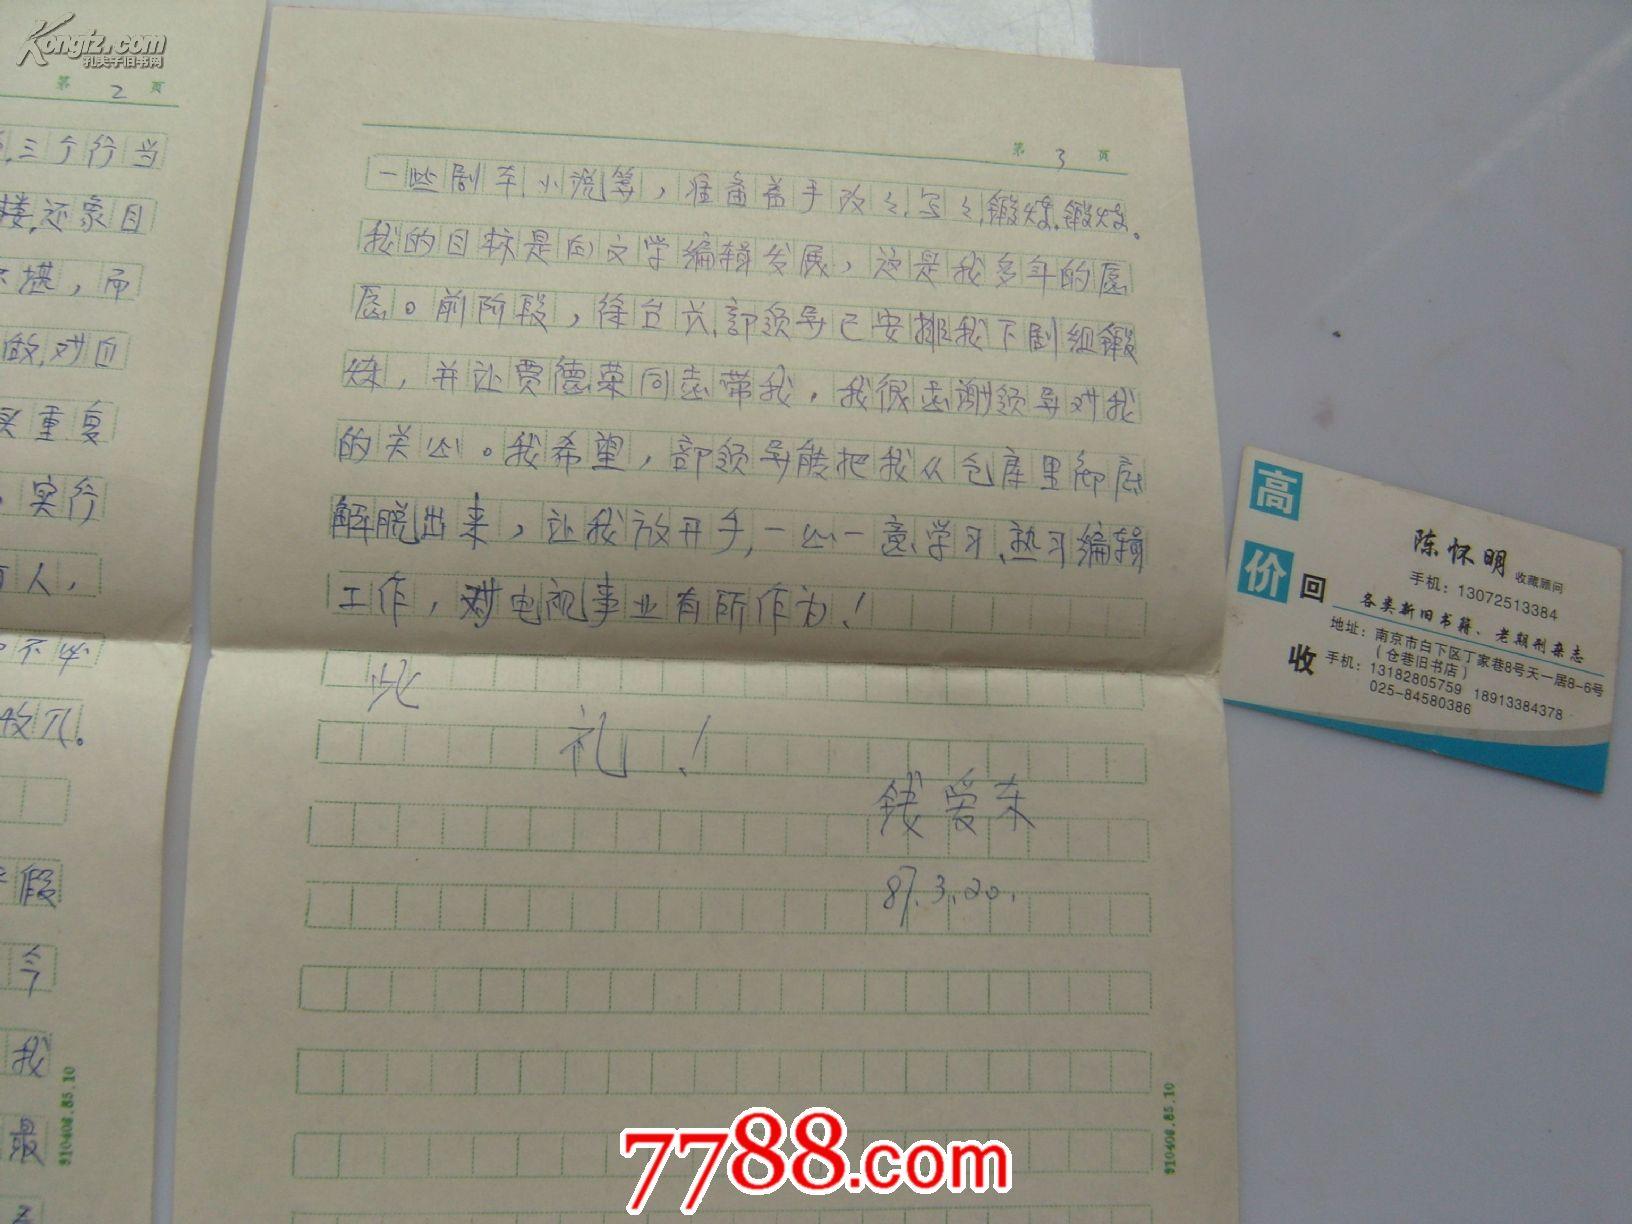 Kongfz.com
孔夫子旧书网
第 2 页
三个行当
楼,还象目
不堪,而
做,对自
重复
实行
人,
不必
假
今
我
最
910408.85.10
第 3 页
一些剧本、小说等,准备着手改々、写々,锻炼、锻炼。
我的目标是向文学编辑发展,这是我多年的愿
愿。前阶段,徐台长、部领导已安排我下剧组锻
炼,并让贾德荣同志带我,我很感谢领导对我
的关心。我希望,部领导能把我从仓库里彻底
解脱出来,让我放开手,一心一意学习、熟习编辑
工作,对电视事业有所作为!
此
礼!
钱爱东
87.3.20.
910408.85.10
高价回收
陈怀明 收藏顾问
手机:13072513384
各类新旧书籍、老期刊杂志
地址:南京市白下区丁家巷8号天一居8-6号
(仓巷旧书店)
手机:13182805759 18913384378
025-84580386
7788.com